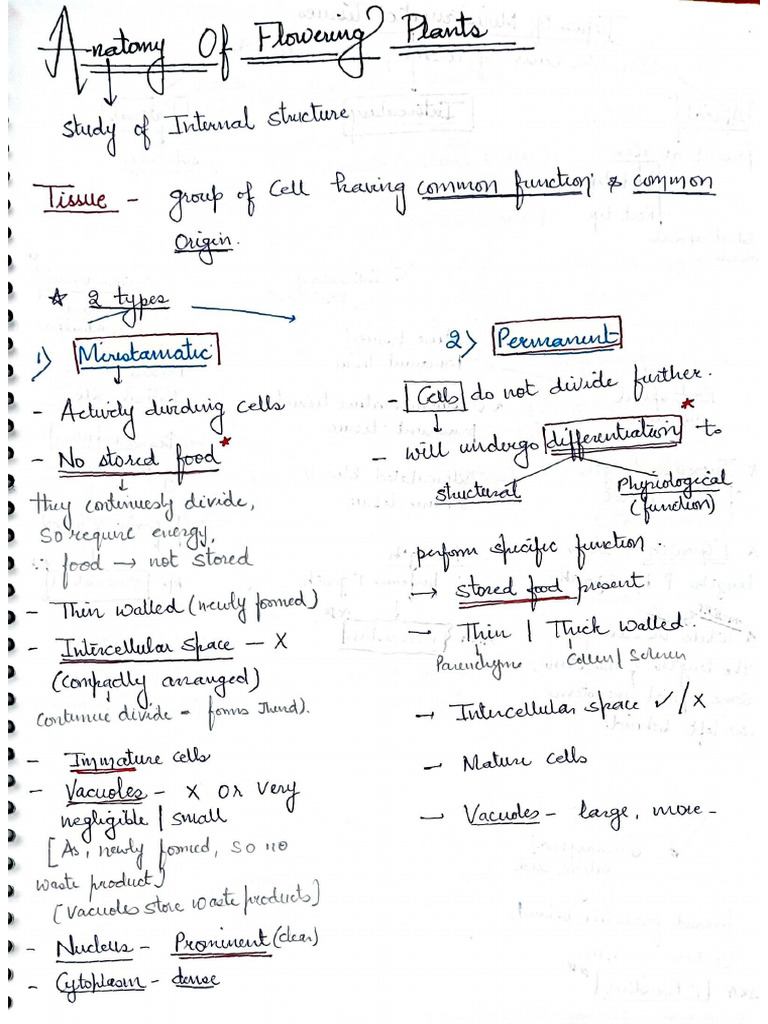 Anatomy Of Flowering Plants
Study of Internal structure
Tissue - group of cell having common function & common
origin.
☆ 2 types
1) Meristamatic
- Actively dividing cells
- No stored food*
they continuosly divide,
So require energy,
∴ food → not stored
- Thin walled (newly formed)
- Intercellular space - X
(compadly arranged)
continue divide - forms
- Immature cells
- Vacuoles - X or very
negligible / small
[As, newly formed, so no
waste product]
(Vacuoles store waste products]
- Nucleus - Prominent (clear)
- Cytoplasm - dense
2) Permanent
- Cells do not divide further.
- will undergo differentiation* to
structural
Physiological
(function)
perform specific function.
→ stored food present
- Thin / Thick walled.
Parenchyme Collen / Scleren
- Intercellular space ✓/X
- Mature cells
- Vacuoles - large, more -